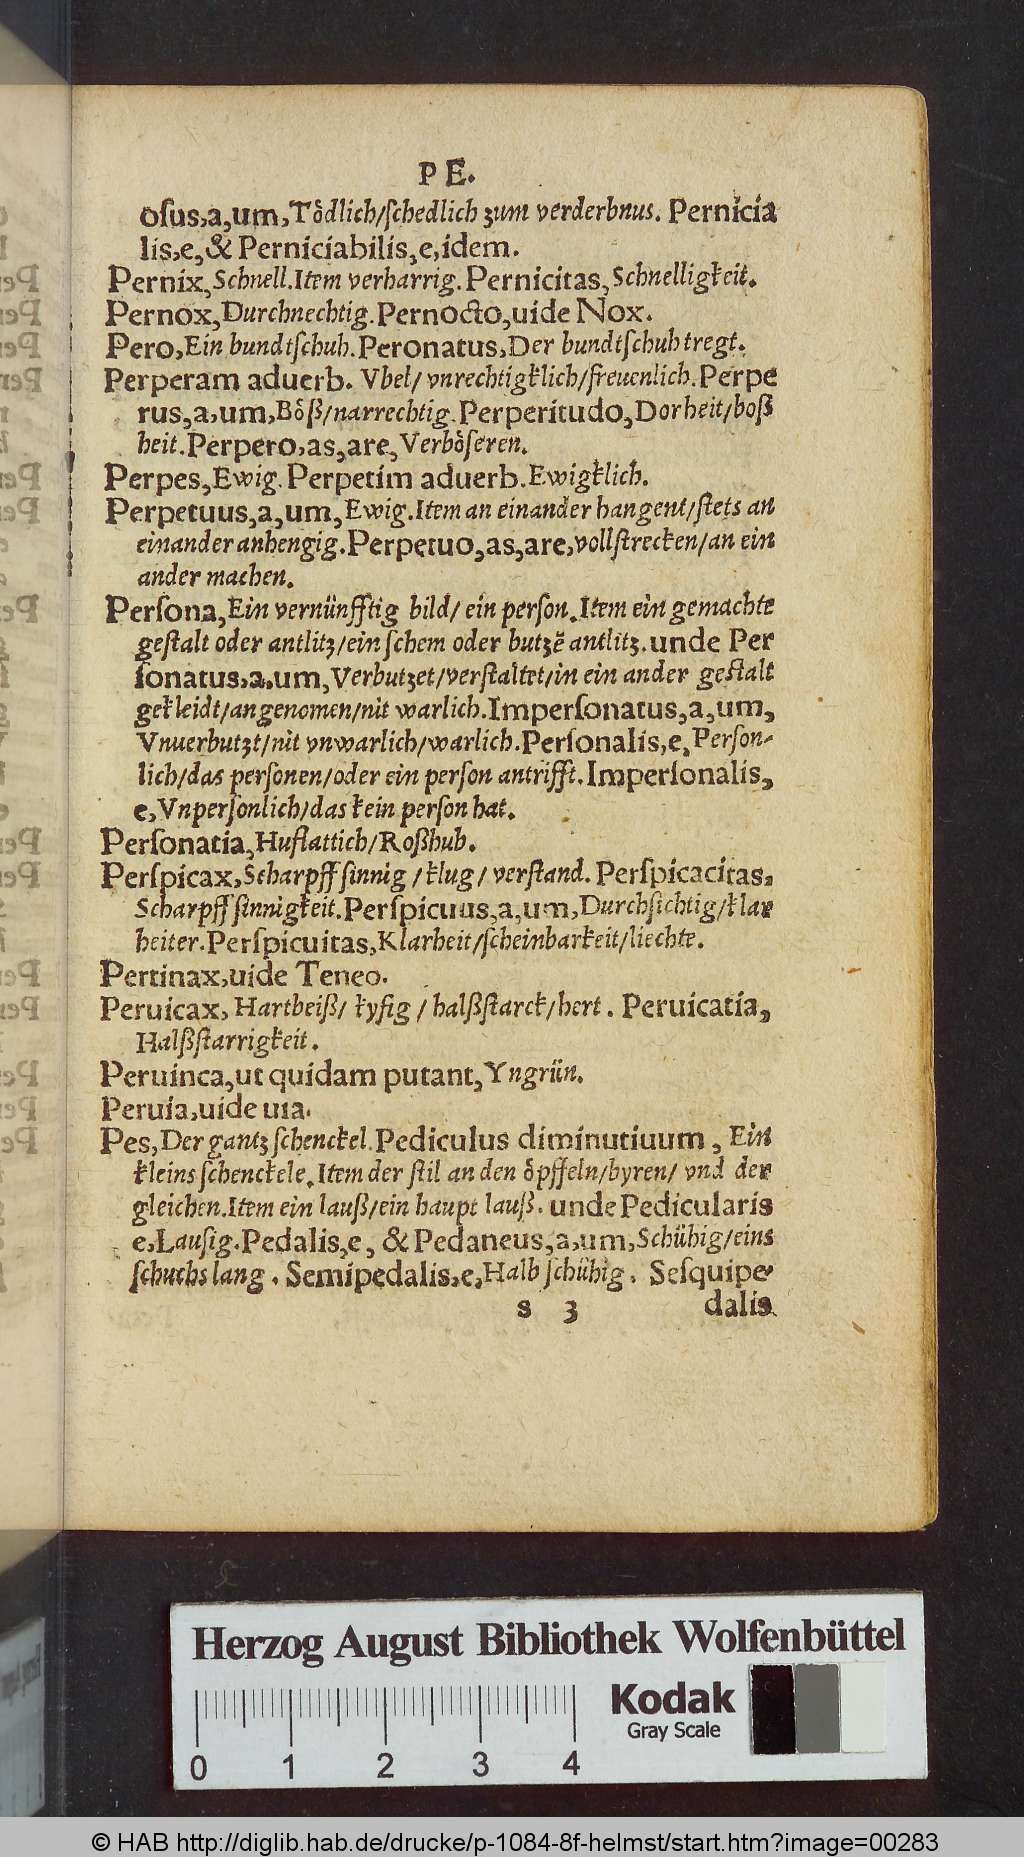 PE.
oſus,a,um,Toͤdlich/ſchedlich zum verderbnus. Pernicia
lis,e,& Perniciabilis,e,idem.
Pernix,Schnell.Item verharrig.Pernicitas,Schnelligkeit.
Pernox,Durchnechtig.Pernocto,uide Nox.
Pero,Ein bundtſchuh.Peronatus,Der bundtſchuh tregt.
Perperam aduerb. Vbel/ vnrechtigklich/freuenlich.Perpe
rus,a,um,Boͤß/narrechtig.Perperitudo,Dorheit/boß
heit.Perpero,as,are,Verboͤſeren.
Perpes,Ewig.Perpetim aduerb.Ewigklich.
Perpetuus,a,um,Ewig.Item an einander hangent/ſtets an
einander anhengig.Perpetuo,as,are,vollſtrecken/an ein
ander machen.
Perſona,Ein vernünfftig bild/ ein perſon.Item ein gemachte
geſtalt oder antlitz/ein ſchem oder butzẽ antlitz.unde Per
ſonatus,a,um,Verbutzet/verſtaltet/in ein ander geſtalt
gekleidt/angenomen/nit warlich.Imperſonatus,a,um,
Vnuerbutzt/nit vnwarlich/warlich.Perſonalis,e,Perſon-
lich/das perſonen/oder ein perſon antrifft.Imperſonalis,
e,Vnperſonlich/das kein perſon hat.
Perſonatia,Huflattich/Roßhub.
Perſpicax,Scharpffſinnig/klug/ verſtand.Perſpicacitas,
Scharpffſinnigkeit.Perſpicuus,a,um,Durchſichtig/klar
heiter.Perſpicuitas,Klarheit/ſcheinbarkeit/liechte.
Pertinax,uide Teneo.
Peruicax, Hartbeiß/ kyfig / halßſtarck/hert. Peruicatia,
Halßſtarrigkeit.
Peruinca,ut quidam putant,Yngrün.
Peruia,uide uia.
Pes,Der gantz ſchenckel.Pediculus diminutiuum, Ein
kleins ſchenckele.Item der ſtil an den oͤpffeln/byren/ vnd der
gleichen.Item ein lauß/ein haupt lauß.unde Pedicularis
e,Lauſig.Pedalis,e, & Pedaneus,a,um,Schühig/eins
ſchuchs lang. Semipedalis,e,Halb ſchühig. Seſquipe
s 3 dalis
Herzog August Bibliothek Wolfenbüttel
Kodak
Gray Scale
0 1 2 3 4
© HAB http://diglib.hab.de/drucke/p-1084-8f-helmst/start.htm?image=00283